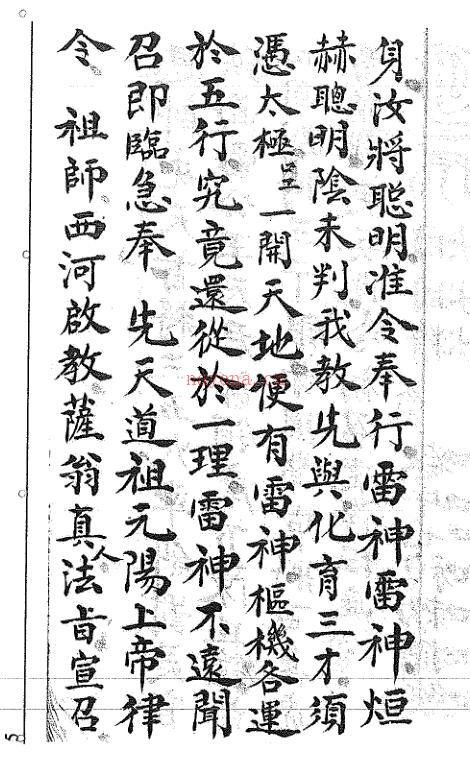 身汝將聰明准令奉行雷神雷神烜
赫聰明陰未判我教先與化育三才須
憑太極一開天地便有雷神樞機各運
於五行究竟還從於一理雷神不遠聞
召即臨急奉 先天道祖元陽上帝律
令 祖師西河啟教薩翁真人法旨宣召
5